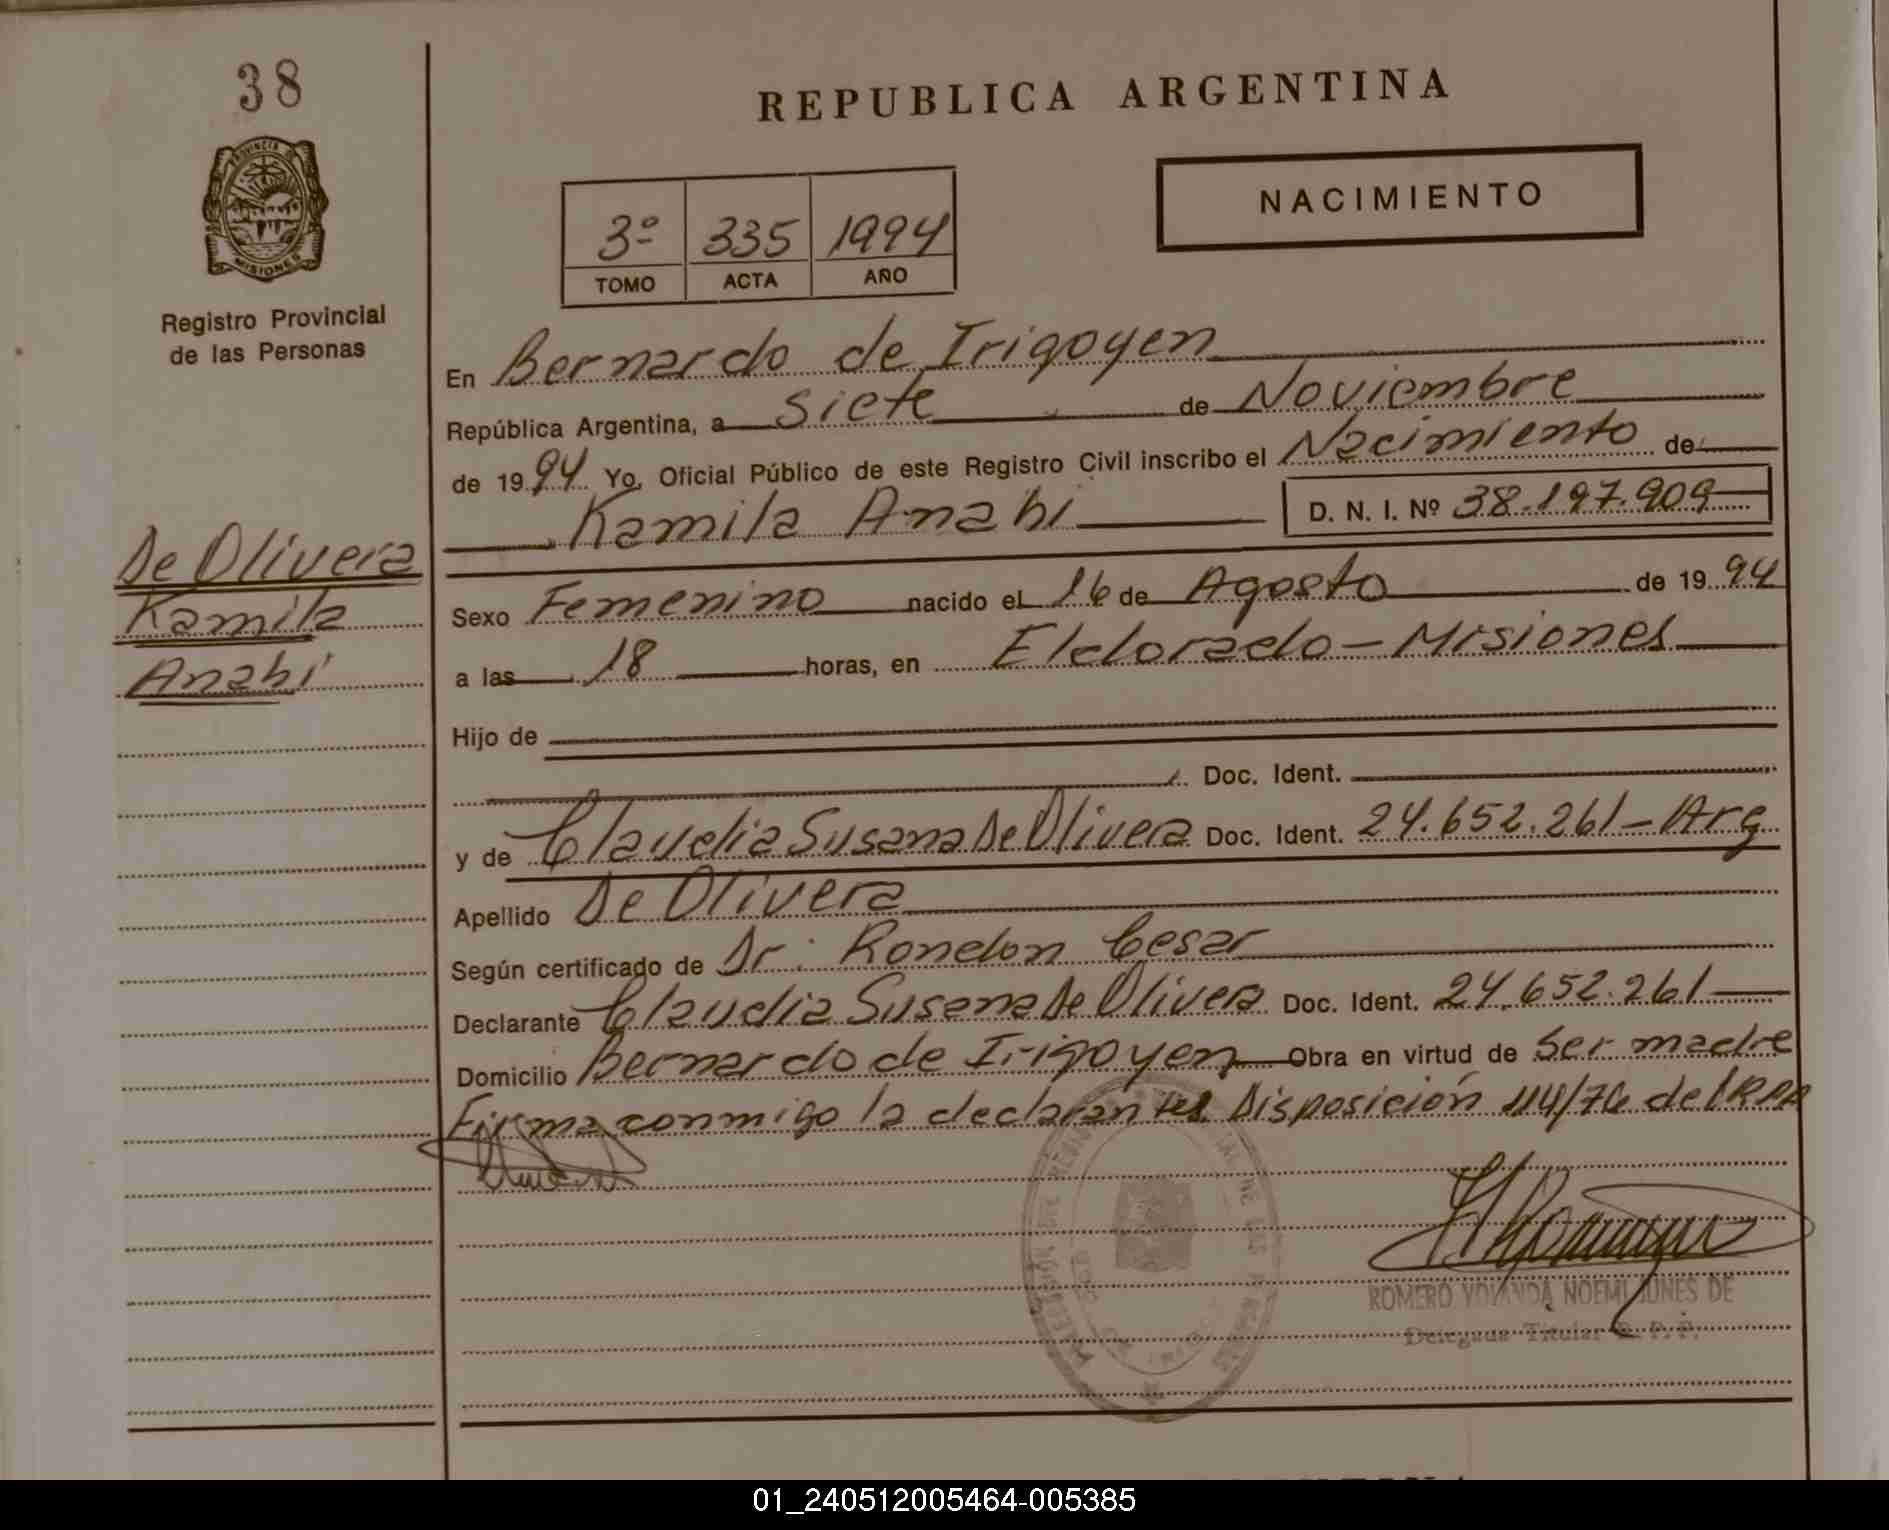 38
REPUBLICA ARGENTINA
PROVINCIA DE
MISIONES
Registro Provincial
de las Personas
3º 335 1994
TOMO ACTA AÑO
NACIMIENTO
En Bernardo de Irigoyen
República Argentina, a siete de Noviembre
de 1994 Yo, Oficial Público de este Registro Civil inscribo el Nacimiento de
Kamila Anahi D. N. I. Nº 38.197.909
De Olivera
Kamila
Anahi
Sexo Femenino nacido el 16 de Agosto de 1994
a las 18 horas, en Eldorado - Misiones
Hijo de
Doc. Ident.
y de Claudia Susana De Olivera Doc. Ident. 24.652.261 - Arg
Apellido De Olivera
Según certificado de Dr: Rondon Cesar
Declarante Claudia Susana De Olivera Doc. Ident. 24.652.261
Domicilio Bernardo de Irigoyen Obra en virtud de Ser madre
Firma conmigo la declarante Disposición 114/76 del RPP
ROMERO YOLANDA NOEMI JUNES DE
Delegada Titular R. P. P.
01_240512005464-005385